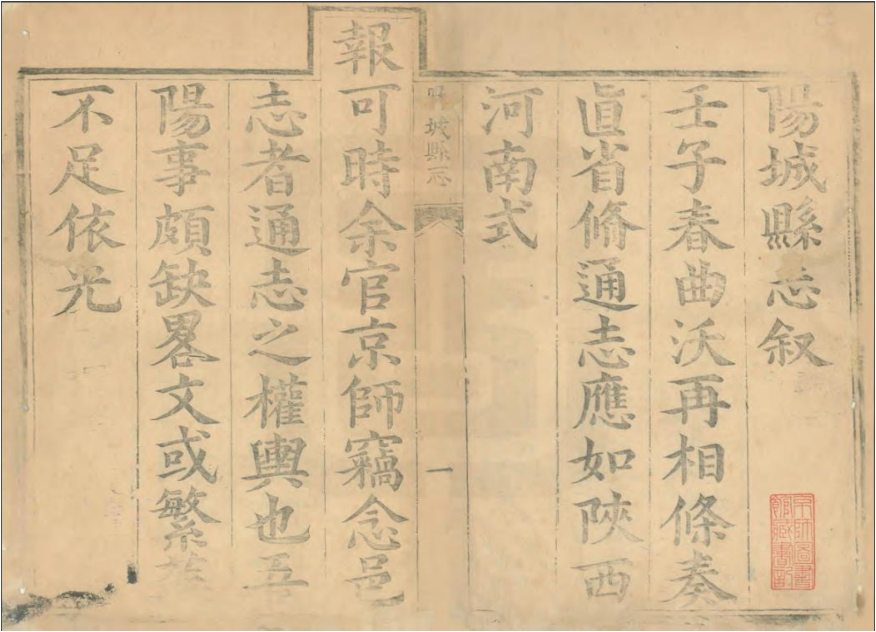 陽城縣志叙
壬子春曲沃再相條奏
直省脩通志應如陝西
河南式
城縣志
一
報可時余官京師竊念邑
志者通志之權輿也吾
陽事頗缺畧文或繁
不足依光
京師圖書
館藏書記